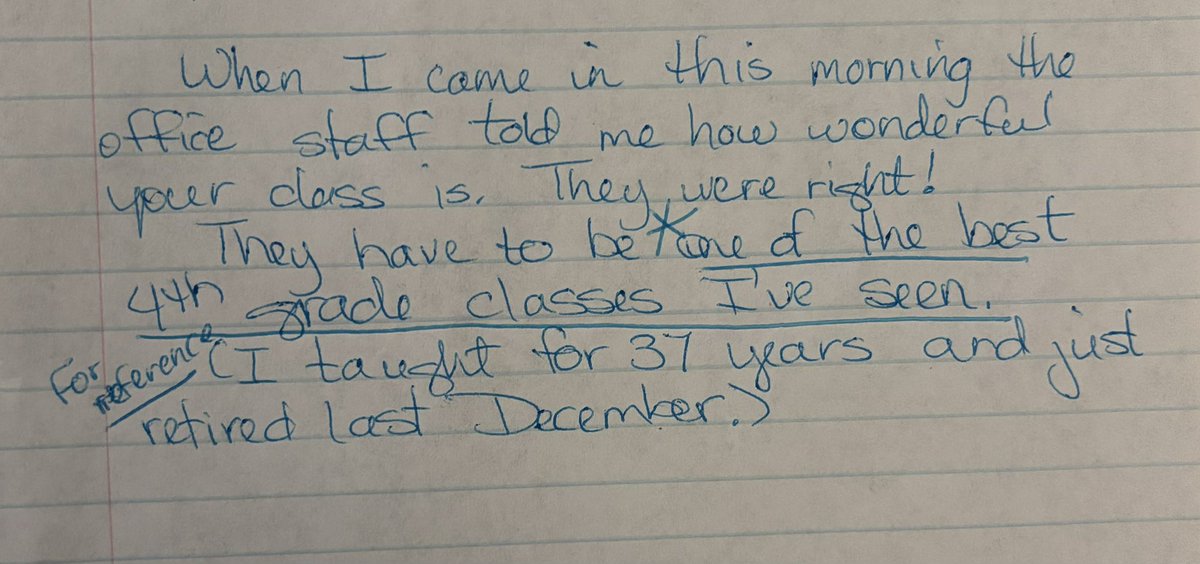 When I came in this morning the
office staff told me how wonderful
your class is. They were right!
They have to be one of the best
4th grade classes I've seen.
For reference (I taught for 37 years and just
retired last December.)